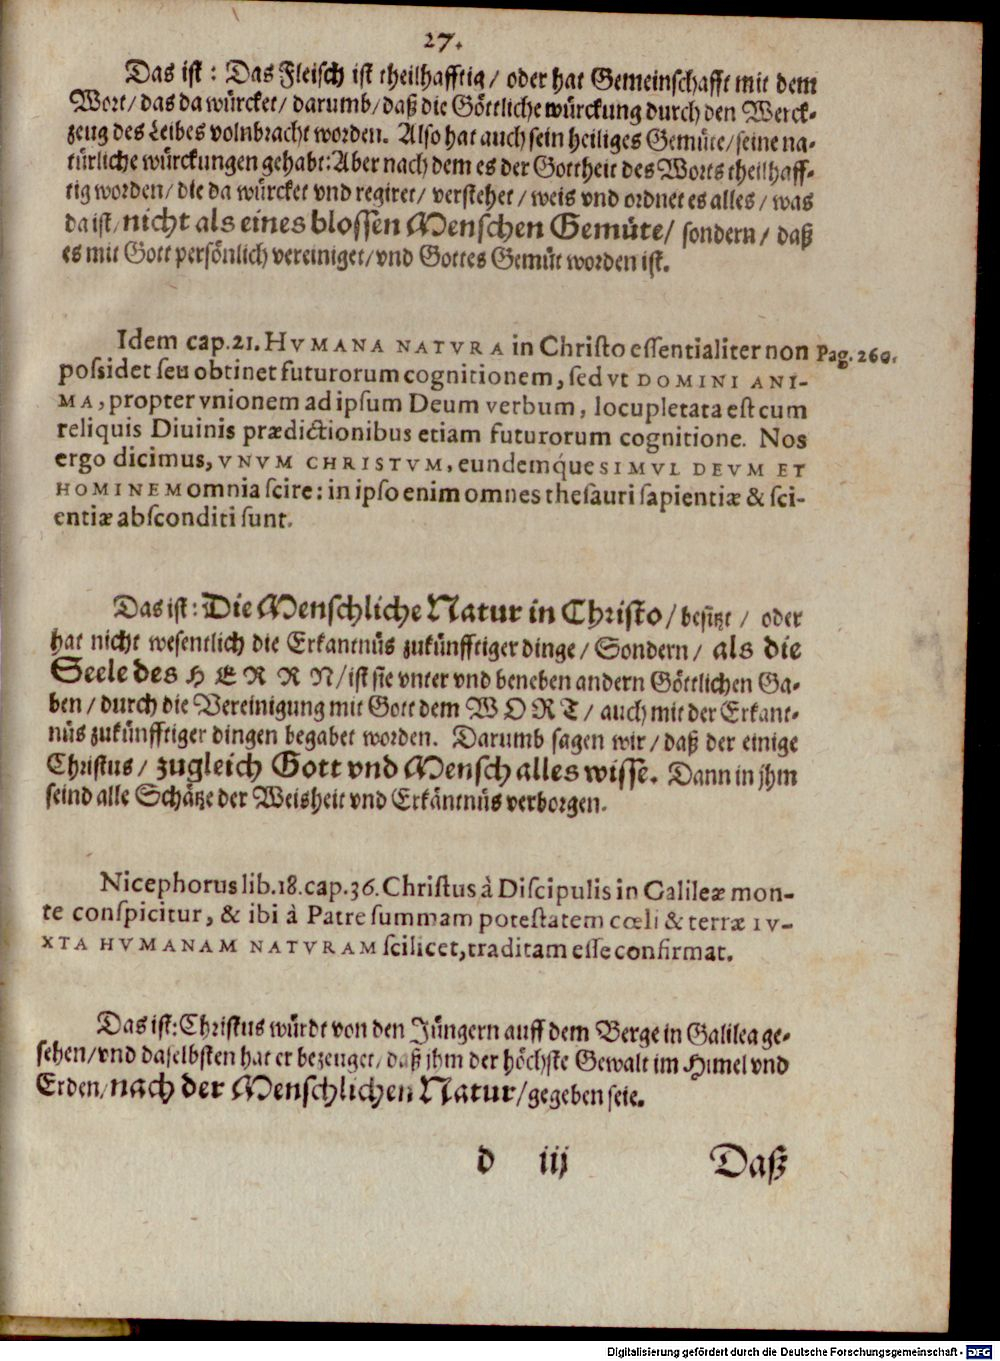 27.
Das ist: Das Fleisch ist theilhafftig/ oder hat Gemeinschafft mit dem
Wort/ das da würcket/ darumb/ daß die Göttliche würckung durch den Werck-
zeug des Leibes volnbracht worden. Also hat auch sein heiliges Gemüte/ seine na-
türliche würckungen gehabt: Aber nach dem es der Gottheit des Worts theilhaff-
tig worden/ die da würcket vnd regiret/ verstehet/ weis vnd ordnet es alles/ was
da ist/ nicht als eines blossen Menschen Gemüte/ sondern/ daß
es mit Gott persönlich vereiniget/ vnd Gottes Gemüt worden ist.
Idem cap.21. HVMANA NATVRA in Christo essentialiter non Pag. 260.
possidet seu obtinet futurorum cognitionem, sed vt DOMINI ANI-
MA, propter vnionem ad ipsum Deum verbum, locupletata est cum
reliquis Diuinis prædictionibus etiam futurorum cognitione. Nos
ergo dicimus, VNVM CHRISTVM, eundemq́ue SIMVL DEVM ET
HOMINEM omnia scire: in ipso enim omnes thesauri sapientiæ & sci-
entiæ absconditi sunt.
Das ist: Die Menschliche Natur in Christo/ besitzt/ oder
hat nicht wesentlich die Erkantnüs zukünfftiger dinge/ Sondern/ als die
Seele des HERRN/ ist sie vnter vnd beneben andern Göttlichen Ga-
ben/ durch die Vereinigung mit Gott dem WORT/ auch mit der Erkant-
nüs zukünfftiger dingen begabet worden. Darumb sagen wir/ daß der einige
Christus/ zugleich Gott vnd Mensch alles wisse. Dann in jhm
seind alle Schätze der Weisheit vnd Erkäntnüs verborgen.
Nicephorus lib.18.cap.36. Christus à Discipulis in Galileæ mon-
te conspicitur, & ibi à Patre summam potestatem cœli & terræ IV-
XTA HVMANAM NATVRAM scilicet, traditam esse confirmat.
Das ist: Christus würdt von den Jüngern auff dem Berge in Galilea ge-
sehen/ vnd daselbsten hat er bezeuget/ daß jhm der höchste Gewalt im Himel vnd
Erden/ nach der Menschlichen Natur/ gegeben seie.
d iij Daß
Digitalisierung gefördert durch die Deutsche Forschungsgemeinschaft - DFG